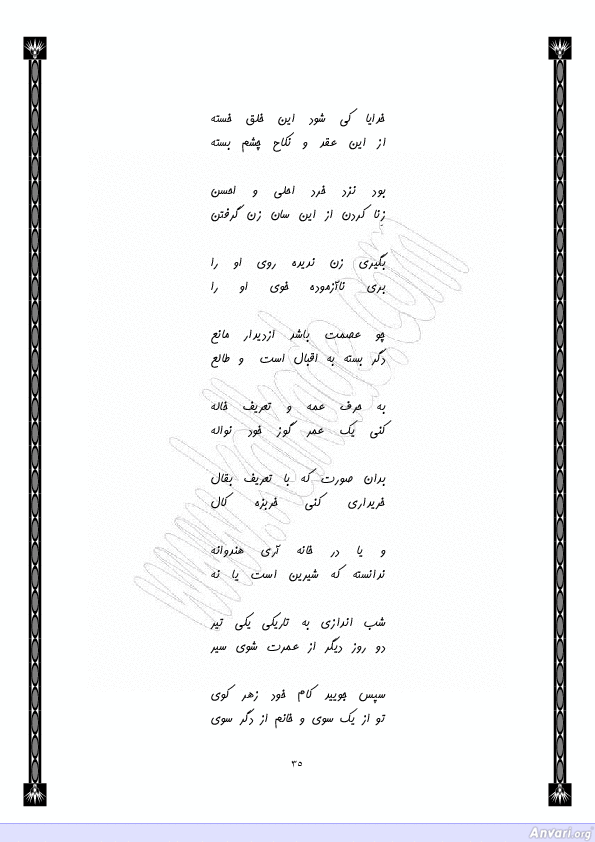 خدایا کی شود این خلق خسته
از این عقد و نکاح چشم بسته
بود نزد خرد احلی و احسن
زنا کردن از این سان زن گرفتن
بگیری زن ندیده روی او را
بری ناآزموده خوی او را
چو عصمت باشد ازدیدار مانع
دگر بسته به اقبال است و طالع
به حرف عمه و تعریف خاله
کنی یک عمر گوز خود نواله
بدان صورت که با تعریف بقال
خریداری کنی خربزه کال
و یا در خانه آری هندوانه
ندانسته که شیرین است یا نه
شب اندازی به تاریکی یکی تیر
دو روز دیگر از عمرت شوی سیر
سپس جویید کام خود زهر کوی
تو از یک سوی و خانم از دگر سوی
۳۵
Anvari.org